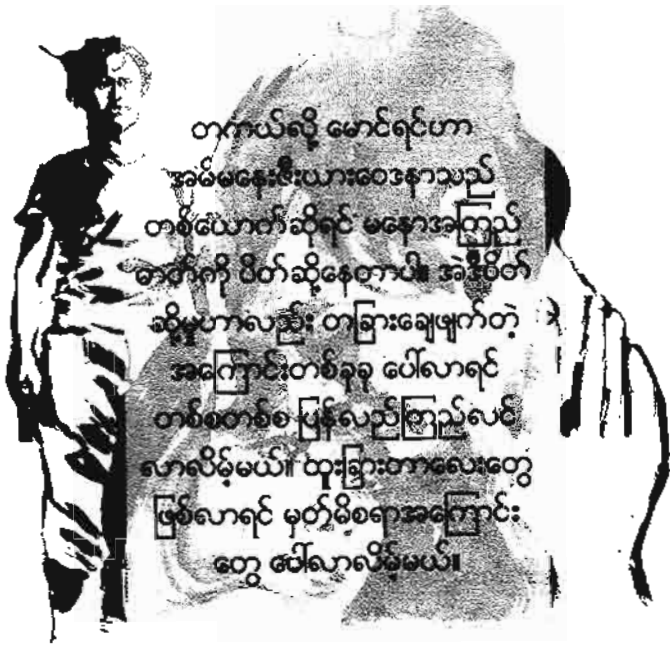 တကယ်လို့ မောင်ရင်ဟာ
အမ်မနေးဇီးယားဝေဒနာသည်
တစ်ယောက်ဆိုရင် မနောအကြည်
ဓာတ်ကို ပိတ်ဆို့နေတာပါ။ အဲဒီပိတ်
ဆို့မှုဟာလည်း တခြားချေဖျက်တဲ့
အကြောင်းတစ်ခုခု ပေါ်လာရင်
တစ်စတစ်စ ပြန်လည်ကြည်လင်
လာလိမ့်မယ်။ ထူးခြားတာလေးတွေ
ဖြစ်လာရင် မှတ်မိစရာအကြောင်း
တွေ ပေါ်လာလိမ့်မယ်။